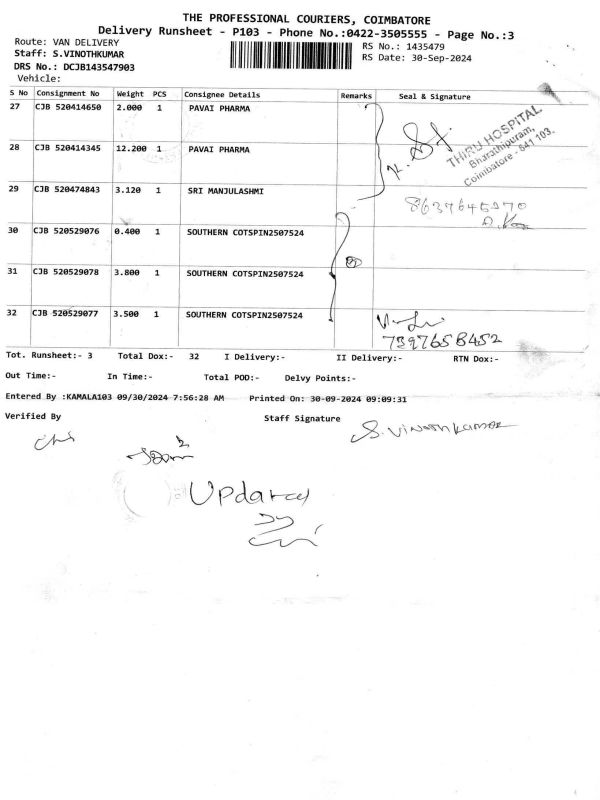 THE PROFESSIONAL COURIERS, COIMBATORE
Delivery Runsheet - P103 - Phone No.:0422-3505555 - Page No.:3
Route: VAN DELIVERY
RS No.: 1435479
Staff: S.VINOTHKUMAR
RS Date: 30-Sep-2024
DRS No.: DCJB143547903
Vehicle:
S No Consignment No Weight PCS Consignee Details Remarks Seal & Signature
27 CJB 520414650 2.000 1 PAVAI PHARMA
THIRU HOSPITAL
Bharathipuram,
Coimbatore - 641 103.
28 CJB 520414345 12.200 1 PAVAI PHARMA
29 CJB 520474843 3.120 1 SRI MANJULASHMI
8637645970
30 CJB 520529076 0.400 1 SOUTHERN COTSPIN2507524
31 CJB 520529078 3.800 1 SOUTHERN COTSPIN2507524
32 CJB 520529077 3.500 1 SOUTHERN COTSPIN2507524
7397658452
Tot. Runsheet:- 3 Total Dox:- 32 I Delivery:- II Delivery:- RTN Dox:-
Out Time:- In Time:- Total POD:- Delvy Points:-
Entered By :KAMALA103 09/30/2024 7:56:28 AM Printed On: 30-09-2024 09:09:31
Verified By Staff Signature
S. Vinothkumar
Updated
by